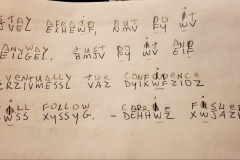 TAY AFRAID, BUT DO IT
JVEL EXHEWF, NMV FY WV
ANYWAY. JUST DO IT AND
EILGEL. BMJV FY WV EIF
VENTUALLY THE CONFIDENCE
ZRZIVMESSL VAZ DYIXWFZIDZ
ILL FOLLOW - CARRIE FISHE
WSS XYSSYG. DEHHWZ XWJAZ